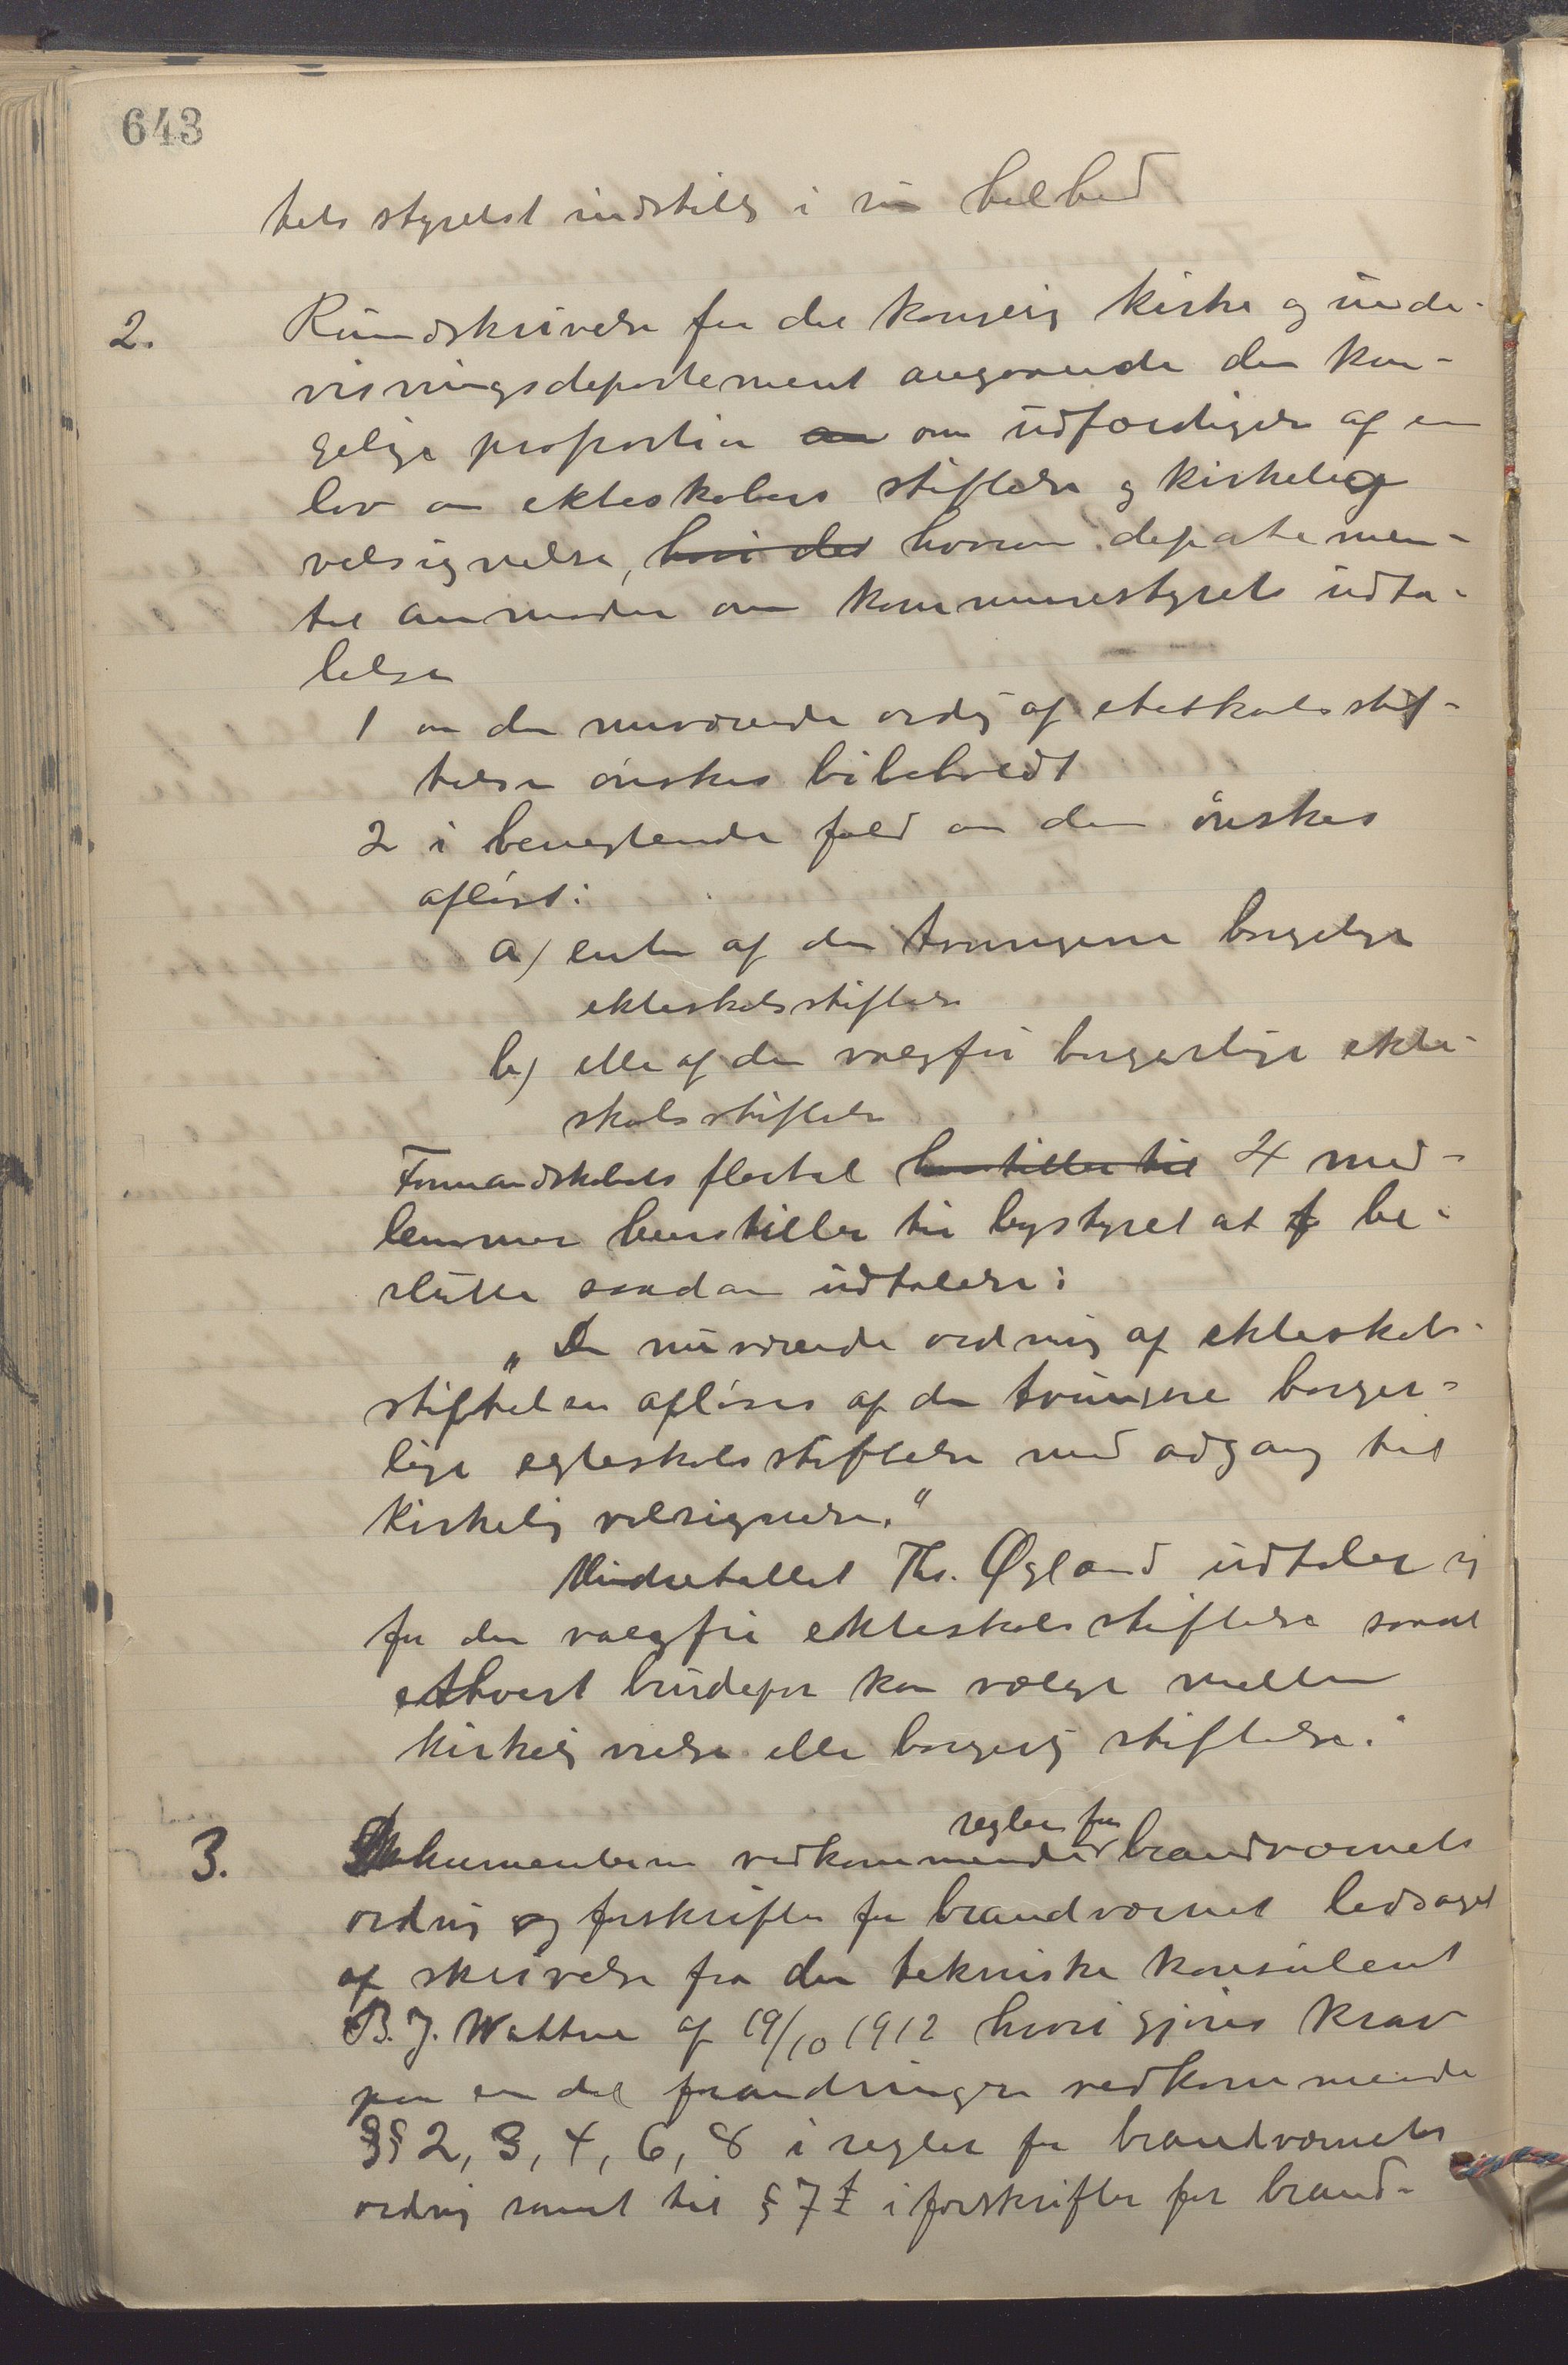 643
tets styrelse indstilles i sin helhed
2. Rundskrivelse fra det kongelig kirke og under-
visningsdepartement angaaende den kon-
gelige proposition om om udfærdigelse af en
lov om ekteskabets stiftelse og kirkelig
velsignelse, hvori det hvorom departemen-
tet anmoder om kommunestyrets udta-
lelse
1 om den nuværende ordng af ekteskabsstif-
telse ønskes bibeholdt
2 i benegtende fald om den ønskes
afløst:
a) enten af den tvungne borgerlige
ekteskabsstiftelse
b) eller af den valgfri borgerlige ekte-
skabsstiftelse
Formandskabets flertal henstiller til 4 med-
lemmer henstiller til bystyret at f be-
slutte saadan udtalelse:
„Den nuværende ordning af ekteskabs-
stiftelsen afløses af den tvungne borger-
lige egteskabsstiftelse med adgang til
kirkelig velsignelse."
Mindretallet Ths. Øgland udtaler sig
for den valgfri ekteskabsstiftelse saaat
ethvert brudepar kan vælge mellem
kirkelig vielse eller borgerlig stiftelse."
regler for
3. Dokumenterne vedkommende brandvæernets
ordning og forskrifter for brandvæernet ledsaget
af skrivelse fra den tekniske konsulent
B.J. Wattne af 19/10 1912 hvori gjøres krav
paa en del forandringer vedkommende
§§ 2, 3, 4, 6, 8 i regler for brandvæernets
ordning samt til § 7 i forskrifter for brand-